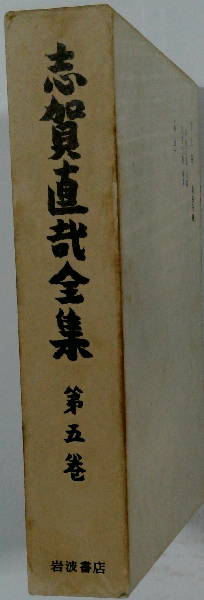 志賀直哉全集
第五巻
岩波書店